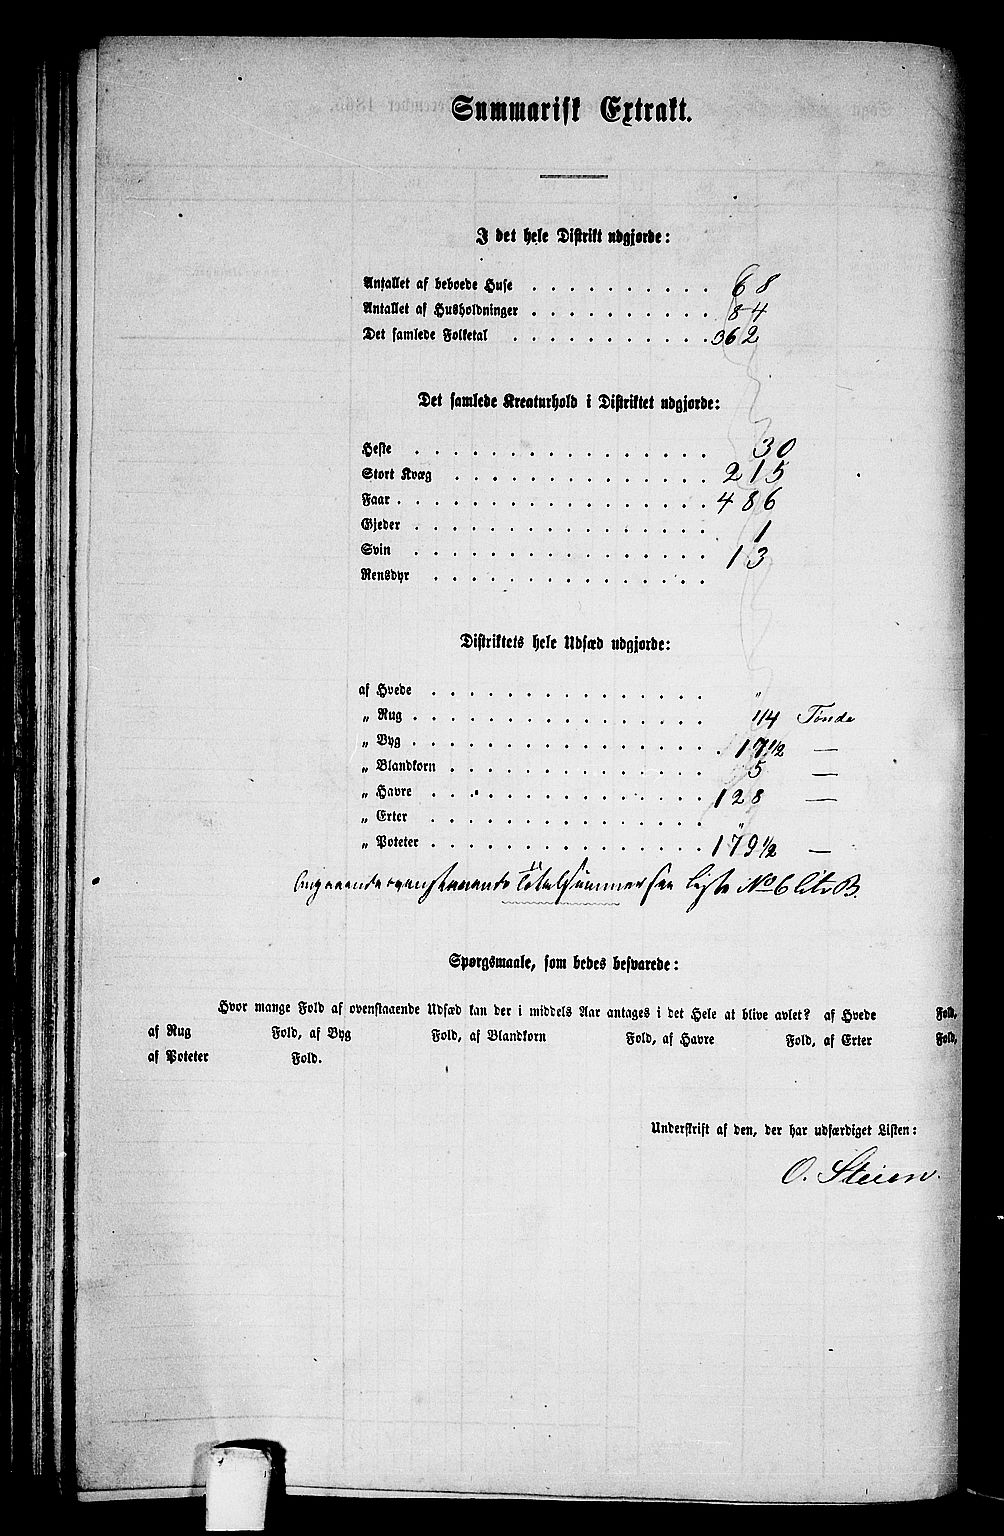 Summarisk Extrakt.
I det hele Distrikt udgjorde:
Antallet af beboede Huse . . . . . . . . . . 68
Antallet af Husholdninger . . . . . . . . . . 84
Det samlede Folketal . . . . . . . . . . . 362
Det samlede Kreaturhold i Distriktet udgjorde:
Heste . . . . . . . . . . . . . . . . 30
Stort Kvæg . . . . . . . . . . . . . . 215
Faar . . . . . . . . . . . . . . . . . 486
Gjeder . . . . . . . . . . . . . . . . 1
Svin . . . . . . . . . . . . . . . . 13
Rensdyr . . . . . . . . . . . . . . .
Distriktets hele Udsæd udgjorde:
af Hvede . . . . . . . . . . . . . . . "
„ Rug . . . . . . . . . . . . . . . . 1/4 Tønde
„ Byg . . . . . . . . . . . . . . . . . 17 1/2 —
„ Blandkorn . . . . . . . . . . . . . . 5 —
„ Havre . . . . . . . . . . . . . . . 128 —
„ Erter . . . . . . . . . . . . . . . "
„ Poteter . . . . . . . . . . . . . . . 179 1/2 —
Angaaende ovenstaaende Totalsummer see Liste No 6 Litr B.
Spørgsmaale, som bedes besvarede:
Hvor mange Fold af ovenstaaende Udsæd kan der i middels Aar antages i det Hele at blive avlet? af Hvede Fold,
af Rug Fold, af Byg Fold, af Blandkorn Fold, af Havre Fold, af Erter Fold,
af Poteter Fold.
Underskrift af den, der har udfærdiget Listen:
O. Steien.